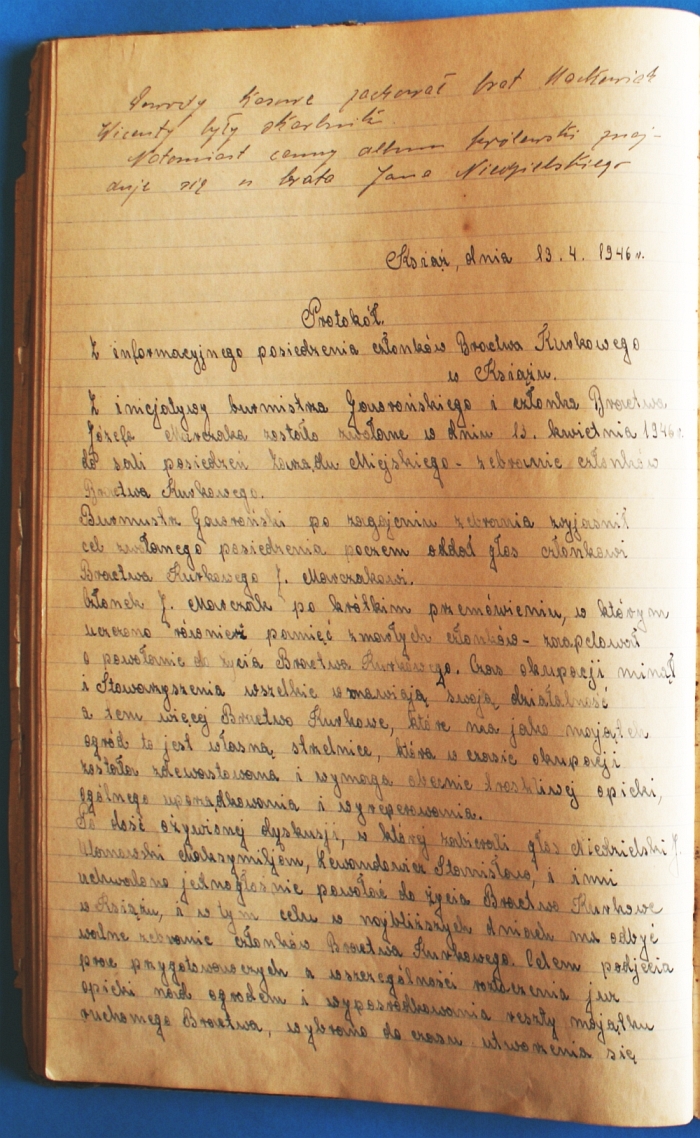 Dowody kasowe zachował brat Maćkowiak
Wicenty były skarbnik.
Natomiast cenny album królewski znaj-
duje się u brata Jana Niedzielskiego
Książ, dnia 13.4.1946 r.
Protokół.
Z informacyjnego posiedzenia członków Bractwa Kurkowego
w Książu.
Z inicjatywy burmistrza Goworońskiego i członka Bractwa
Józefa Marczaka zostało zwołane w dniu 13. kwietnia 1946 r.
do sali posiedzeń Zarządu Miejskiego - zebranie członków
Bractwa Kurkowego.
Burmistrz Goworoński po zagajeniu zebrania wyjaśnił
cel zwołanego posiedzenia poczem oddał głos członkowi
Bractwa Kurkowego J. Marczakowi.
Członek J. Marczak po krótkim przemówieniu, w którym
uczczono również pamięć zmarłych członków - zaapelował
o powołanie do życia Bractwa Kurkowego. Czas okupacji minął
i Stowarzyszenia wszelkie wznawiają swoją działalność
a tem więcej Bractwo Kurkowe, które ma jako majątek
ogród to jest własną strzelnicę, która w czasie okupacji
została zdewastowana i wymaga obecnie troskliwej opieki,
ogólnego uporządkowania i wyreperowania.
Po dość ożywionej dyskusji, w której zabierali głos Niedzielski J.
Maksymiljan, Lewandowicz Stanisław, i inni
uchwalono jednogłośnie powołać do życia Bractwo Kurkowe
w Książu, i w tym celu w najbliższych dniach ma odbyć
walne zebranie członków Bractwa Kurkowego. Celem podjęcia
prac przygotowawczych a wszczególności roztoczenia już
opieki nad ogrodem i wypośrodkowania reszty majątku
ruchomego Bractwa, wybrano do czasu utworzenia się